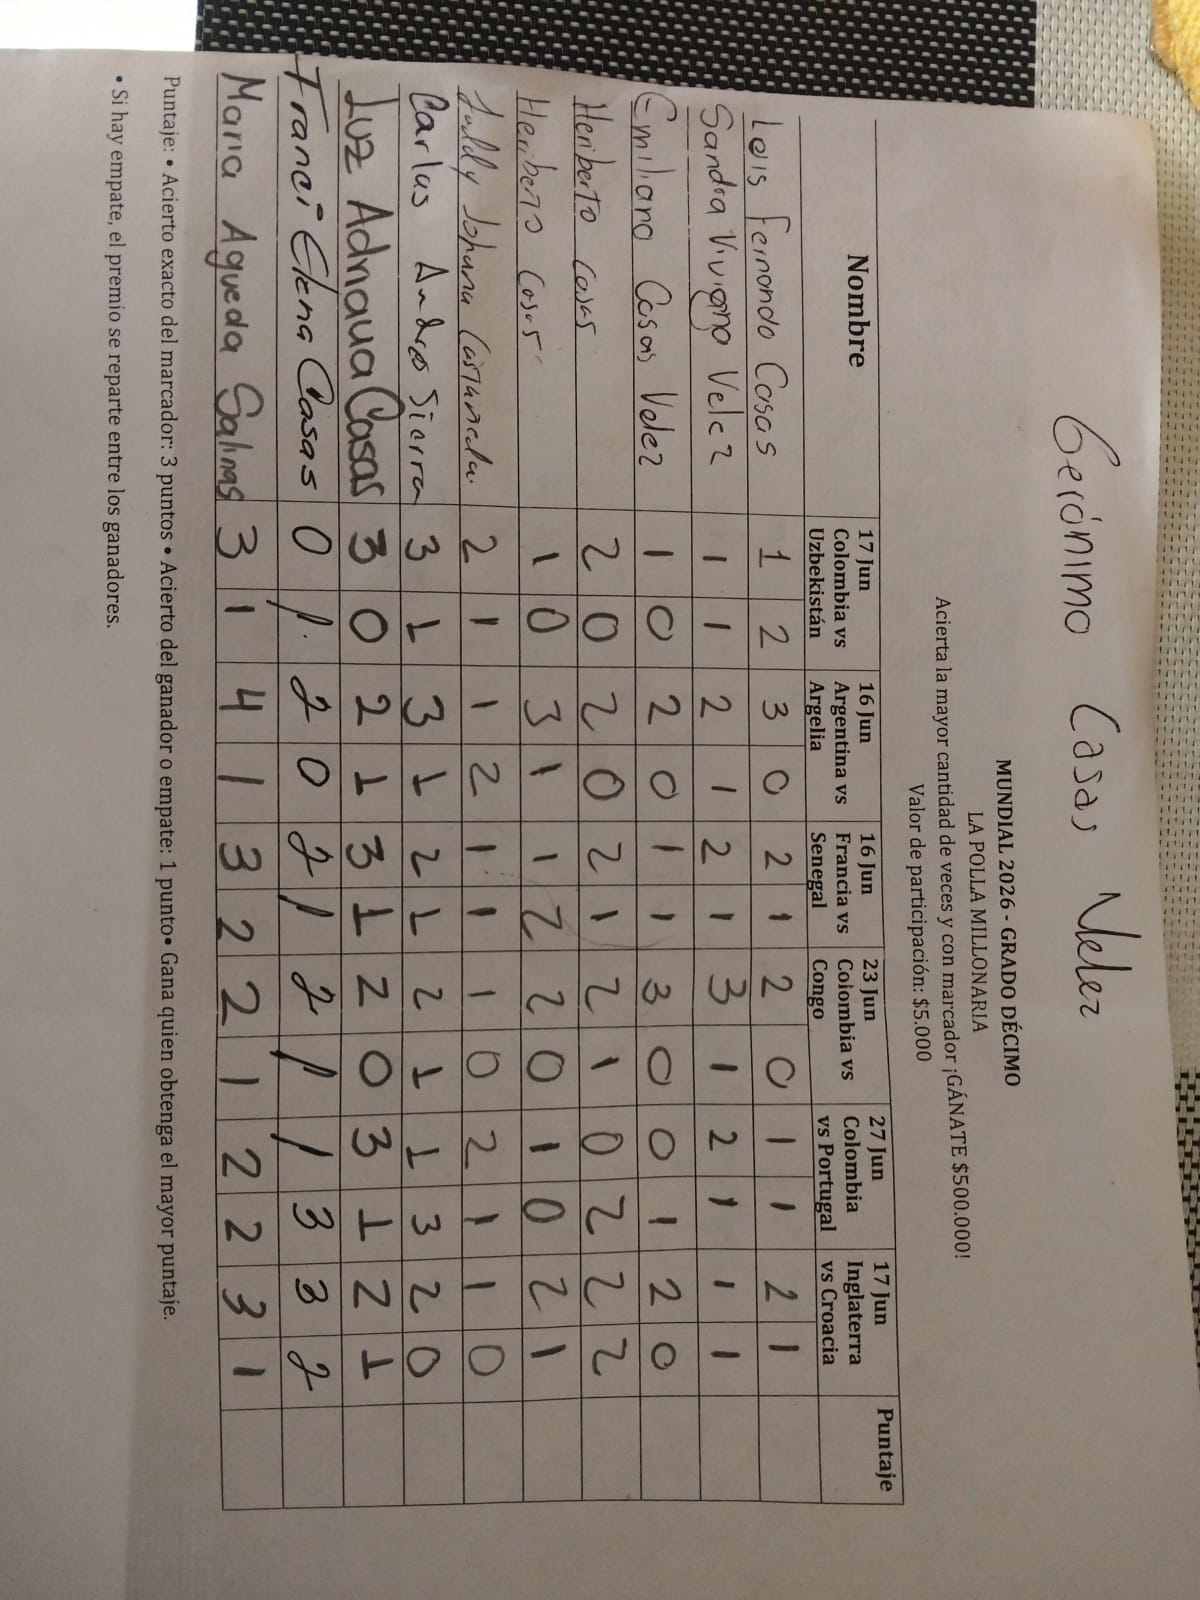 Gerónimo Casas Velez
MUNDIAL 2026 - GRADO DÉCIMO
LA POLLA MILLONARIA
Acierta la mayor cantidad de veces y con marcador ¡GÁNATE $500.000!
Valor de participación: $5.000
Nombre | 17 Jun Colombia vs Uzbekistán | 16 Jun Argentina vs Argelia | 16 Jun Francia vs Senegal | 23 Jun Colombia vs Congo | 27 Jun Colombia vs Portugal | 17 Jun Inglaterra vs Croacia | Puntaje
Leis Fernando Casas 1 2 3 0 2 1 2 0 1 1 2 1
Sandra Viviana Velez 1 1 2 1 2 1 3 1 2 1 1 1
Emiliano Casas Velez 1 0 2 0 1 1 3 0 0 1 2 0
Heriberto Casas 2 0 2 0 2 1 2 1 0 2 2 2
Heriberto Casas 1 0 3 1 1 2 2 0 1 0 2 1
Johana Castañeda 2 1 1 2 1 1 1 0 2 1 1 0
Carlos Andres Sierra 3 1 3 1 2 1 2 1 1 3 2 0
Luz Adriana Casas 3 0 2 1 3 1 2 0 3 1 2 1
Franci Elena Casas 0 1 2 0 2 1 2 1 1 3 3 2
Maria Agueda Salinas 3 1 4 1 3 2 2 1 2 2 3 1
Puntaje: • Acierto exacto del marcador: 3 puntos • Acierto del ganador o empate: 1 punto• Gana quien obtenga el mayor puntaje.
• Si hay empate, el premio se reparte entre los ganadores.